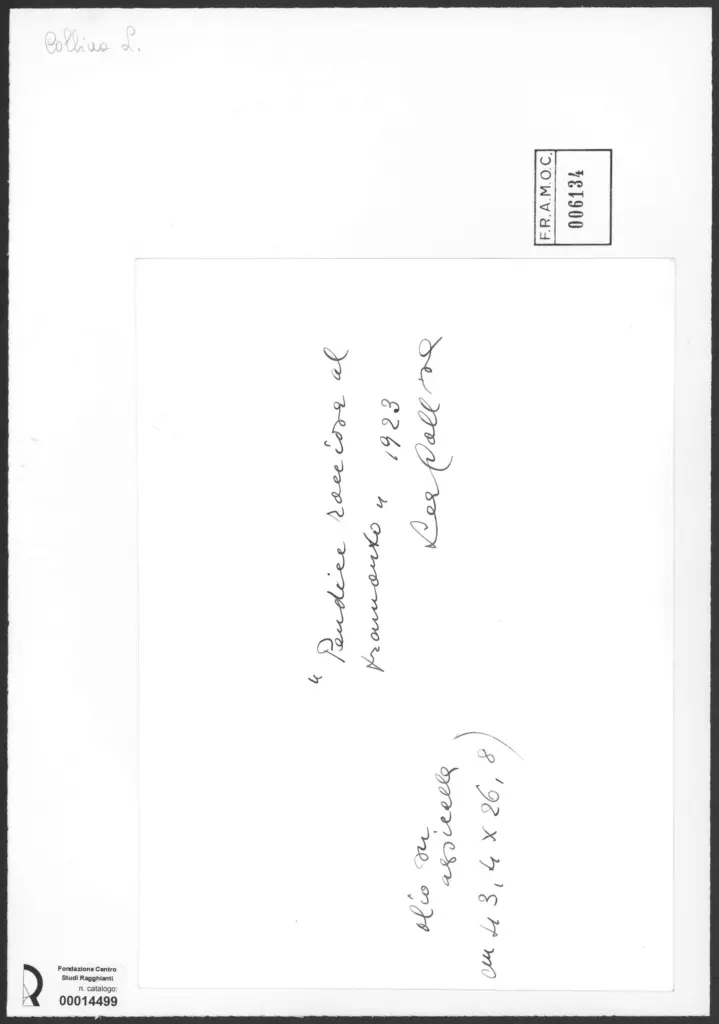 Collina L.
F.R.A.M.O.C.
006134
"Pendice rocciosa al
tramonto" 1923
Lea Collina
olio su
assicella
cm 43,4 x 26,8)
Fondazione Centro
Studi Ragghianti
n. catalogo:
00014499